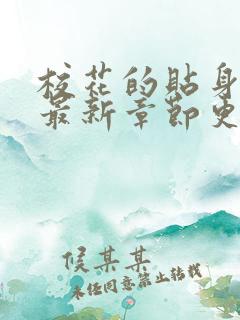 校花的贴身
最新章节更
侯某某
未经同意禁止转载